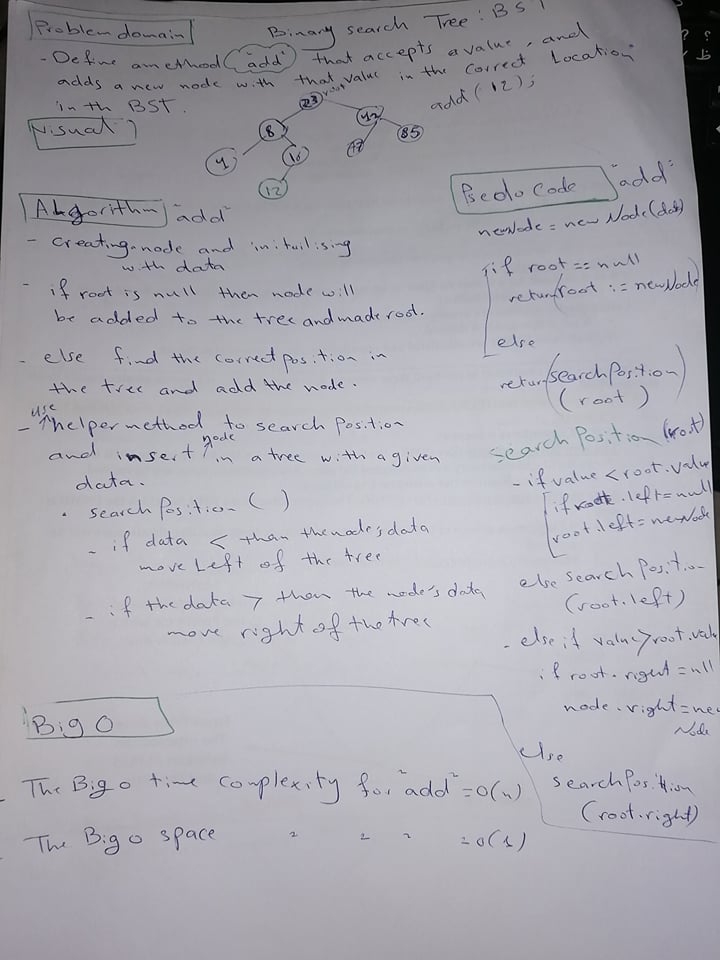 Problem domain
Binary search Tree : BST
- Define a method "add" that accepts a value, and
adds a new node with that value in the correct Location
in th BST.
add(12);
Visual
23 root
8
42
4
16
85
12
Algorithm "add"
- creating node and inituilising
with data
- if root is null then node will
be added to the tree and made root.
- else find the correct position in
the tree and add the node.
- use helper method to search position
and insert node in a tree with a given
data.
. search position ( )
- if data < than the node's data
move Left of the tree
- if the data > than the node's data
move right of the tree
Psedo Code "add"
newNode = new Node(dat)
if root == null
return (root := newNode
else
return (search Position
(root)
search Position (root)
- if value < root.value
if root.left = null
root.left = newNode
else search Position
(root.left)
- else if value > root.value
if root.right = null
node.right = new
Node
else
search Position
(root.right)
Big O
- The Big o time complexity for "add" = O(n)
- The Big o space " " " = O(1)